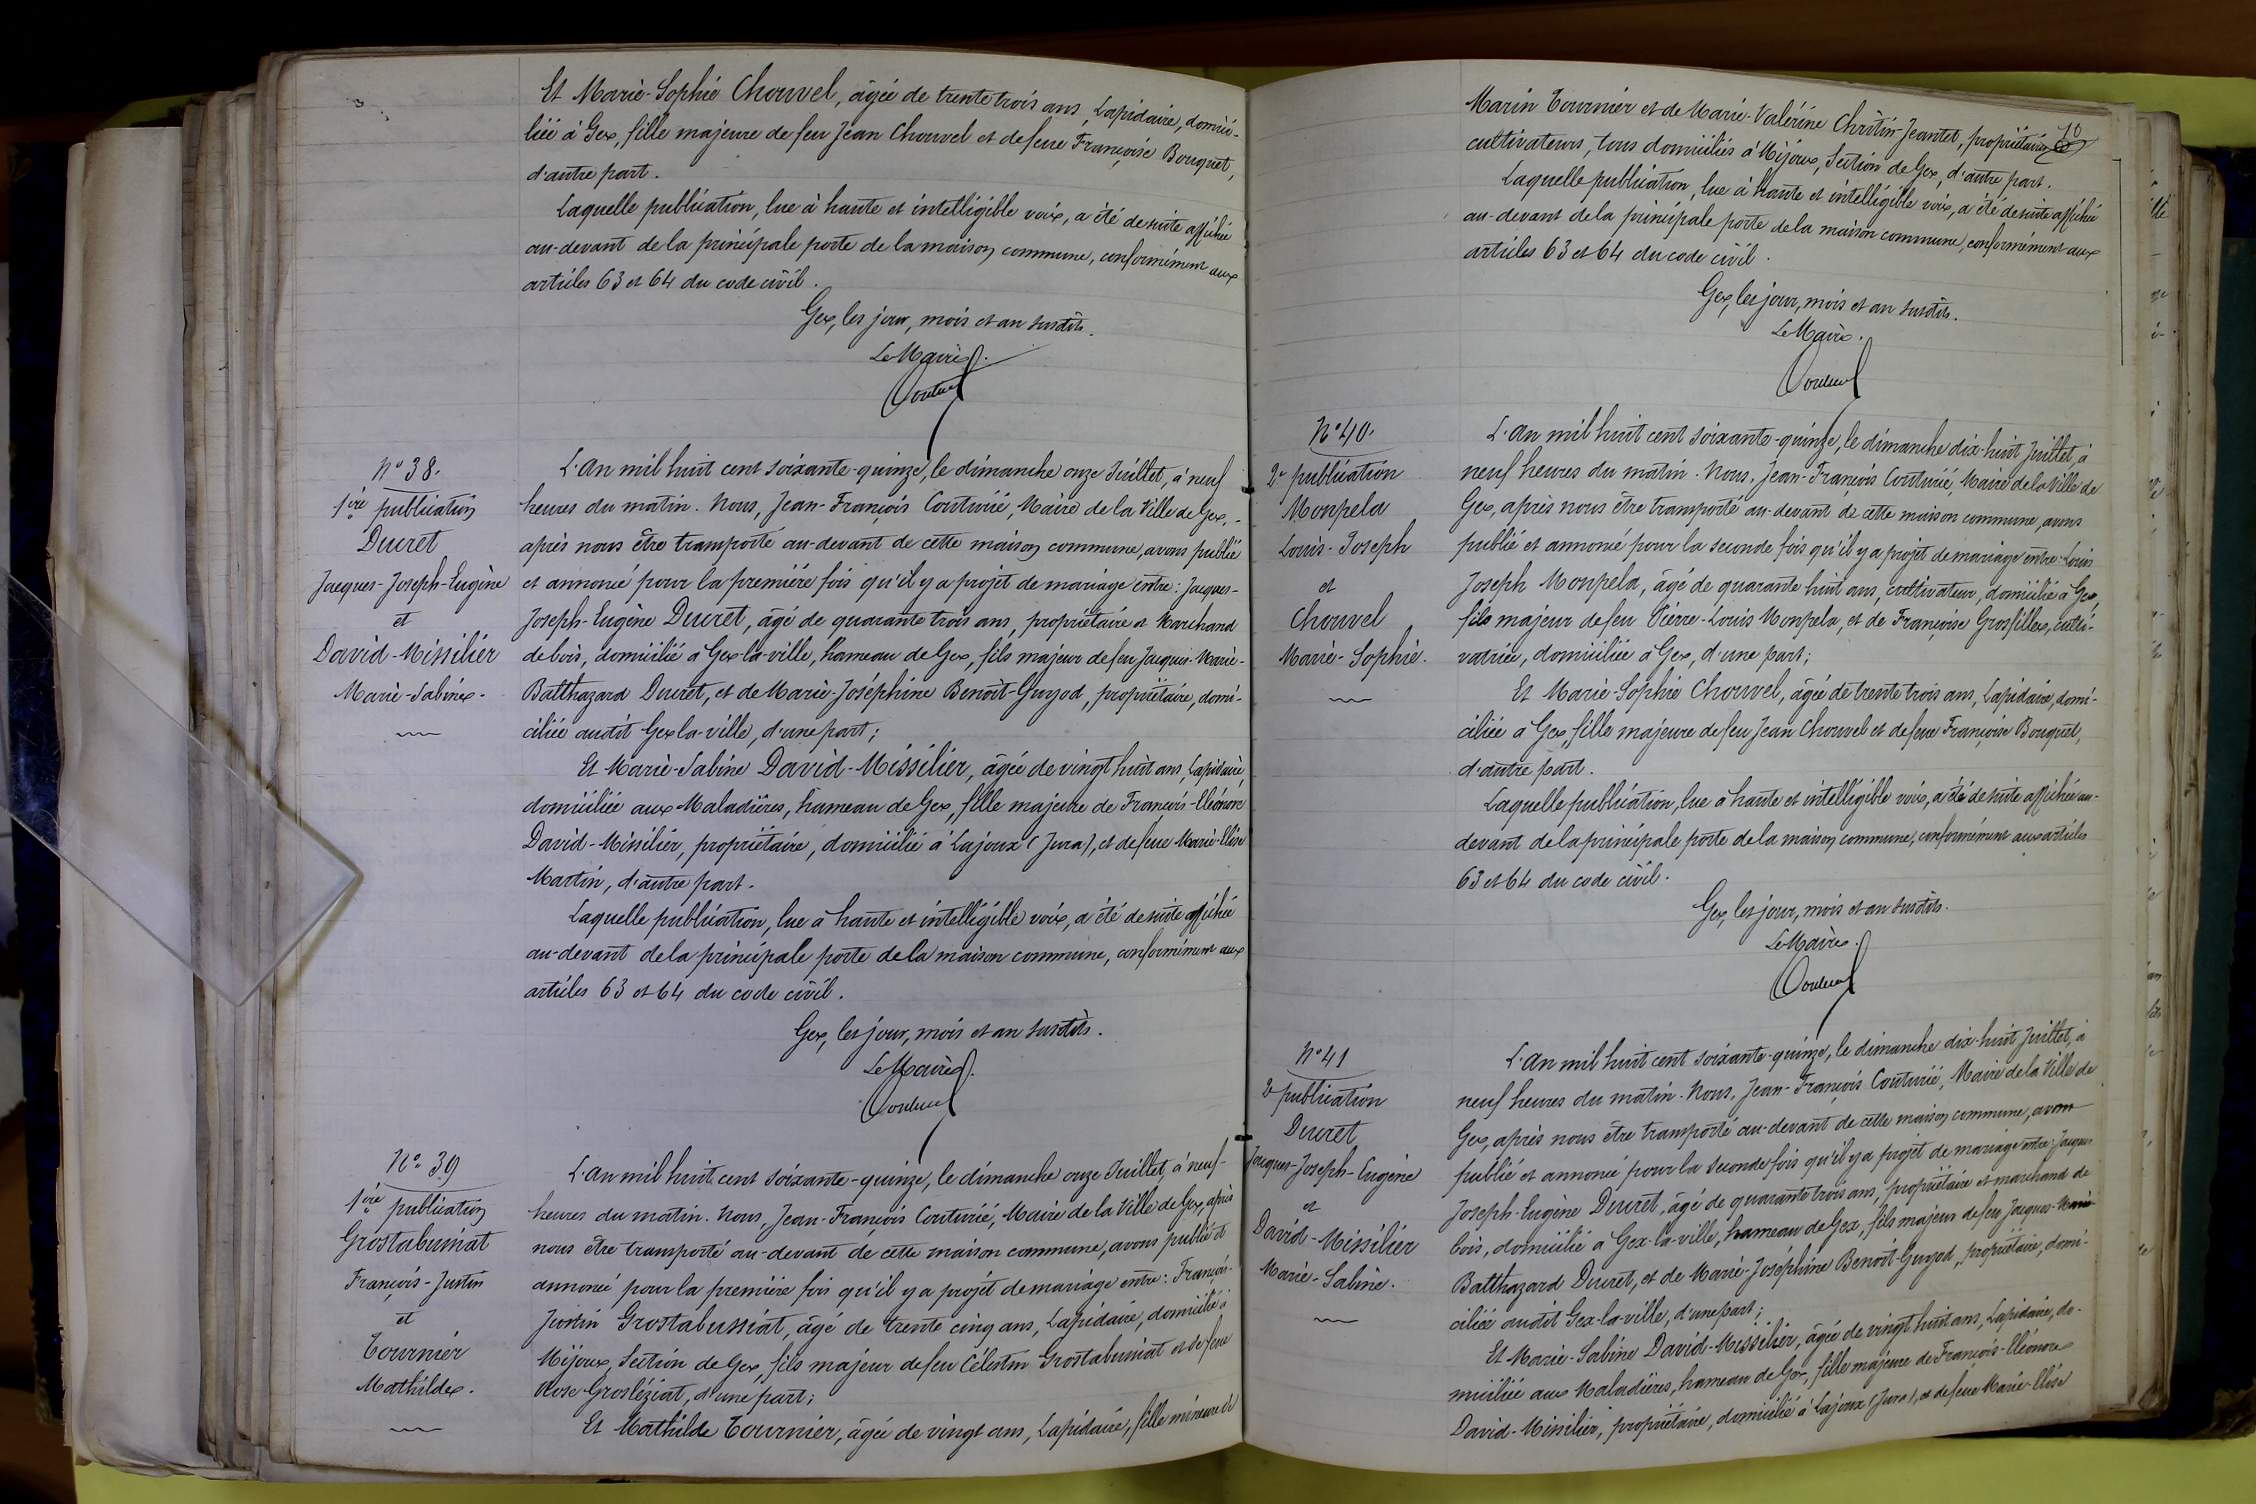 Et Marie-Sophie Chouvel, âgée de trente trois ans, Lapidaire, domici-
liée à Gex, fille majeure de feu Jean Chouvel et de feue Françoise Bouquet,
d'autre part.
Laquelle publication, lue à haute et intelligible voix, a été de suite affichée
au-devant de la principale porte de la maison commune, conformément aux
articles 63 et 64 du code civil.
Gex, les jour, mois et an susdits.
Le Maire.
N° 38.
1ère publication
Ducret
Jacques-Joseph-Eugène
et
David-Missilier
Marie-Sabine.
L'An mil huit cent soixante-quinze, le dimanche onze Juillet, à neuf
heures du matin. Nous, Jean-François Couturié, Maire de la Ville de Gex,
après nous être transporté au-devant de cette maison commune, avons publié
et annoncé pour la première fois qu'il y a projet de mariage entre: Jacques-
Joseph-Eugène Ducret, âgé de quarante trois ans, propriétaire et Marchand
de bois, domicilié à Gex-la-ville, hameau de Gex, fils majeur de feu Jacques-Marie-
Balthazard Ducret, et de Marie-Joséphine Benoît-Guyod, propriétaire, domi-
ciliée audit Gex la-ville, d'une part;
Et Marie-Sabine David-Missilier, âgée de vingt huit ans, Lapidaire,
domiciliée aux Maladières, hameau de Gex, fille majeure de François-Eléonore
David-Missilier, propriétaire, domicilié à Lajoux (Jura), et de feue Marie-Elise
Martin, d'autre part.
Laquelle publication, lue à haute et intelligible voix, a été de suite affichée
au-devant de la principale porte de la maison commune, conformément aux
articles 63 et 64 du code civil.
Gex, les jour, mois et an susdits.
Le Maire.
N° 39
1ère publication
Grostabussiat
François-Justin
et
Tournier
Mathilde.
L'An mil huit cent soixante-quinze, le dimanche onze Juillet, à neuf-
heures du matin. Nous, Jean-François Couturié, Maire de la Ville de Gex, après
nous être transporté au-devant de cette maison commune, avons publié et
annoncé pour la première fois qu'il y a projet de mariage entre: François-
Justin Grostabussiat, âgé de trente cinq ans, Lapidaire, domicilié à
Mijoux, Section de Gex, fils majeur de feu Célestin Grostabussiat et de feue
Rose Grosléziat, d'une part;
Et Mathilde Tournier, âgée de vingt ans, Lapidaire, fille mineure de
10
Marin Tournier et de Marie-Valérine Chritin-Jeantet, propriétaires
cultivateurs, tous domiciliés à Mijoux, Section de Gex, d'autre part.
Laquelle publication, lue à haute et intelligible voix, a été de suite affichée
au-devant de la principale porte de la maison commune, conformément aux
articles 63 et 64 du code civil.
Gex, les jour, mois et an susdits.
Le Maire.
N° 40.
2e publication
Monpela
Louis-Joseph
et
Chouvel
Marie-Sophie.
L'An mil huit cent soixante-quinze, le dimanche dix-huit Juillet, à
neuf heures du matin. Nous, Jean-François Couturié, Maire de la Ville de
Gex, après nous être transporté au-devant de cette maison commune, avons
publié et annoncé pour la seconde fois qu'il y a projet de mariage entre Louis
Joseph Monpela, âgé de quarante huit ans, cultivateur, domicilié à Gex,
fils majeur de feu Pierre-Louis Monpela, et de Françoise Grosfillex, culti-
vatrice, domiciliée à Gex, d'une part;
Et Marie-Sophie Chouvel, âgée de trente trois ans, Lapidaire, domi-
ciliée à Gex, fille majeure de feu Jean Chouvel et de feue Françoise Bouquet,
d'autre part.
Laquelle publication, lue à haute et intelligible voix, a été de suite affichée au-
devant de la principale porte de la maison commune, conformément aux articles
63 et 64 du code civil.
Gex, les jour, mois et an susdits.
Le Maire.
N° 41
2e publication
Ducret
Jacques-Joseph-Eugène
et
David-Missilier
Marie-Sabine.
L'An mil huit cent soixante-quinze, le dimanche dix-huit Juillet, à
neuf heures du matin. Nous, Jean-François Couturié, Maire de la Ville de
Gex, après nous être transporté au-devant de cette maison commune, avons
publié et annoncé pour la seconde fois qu'il y a projet de mariage entre: Jacques
Joseph-Eugène Ducret, âgé de quarante trois ans, propriétaire et marchand de
bois, domicilié à Gex-la-ville, hameau de Gex, fils majeur de feu Jacques-Marie
Balthazard Ducret, et de Marie-Joséphine Benoît-Guyod, propriétaire, domi-
ciliée audit Gex-la-ville, d'une part;
Et Marie-Sabine David-Missilier, âgée de vingt huit ans, Lapidaire, do-
miciliée aux Maladières, hameau de Gex, fille majeure de François-Eléonore
David-Missilier, propriétaire, domicilié à Lajoux (Jura), et de feue Marie-Elise